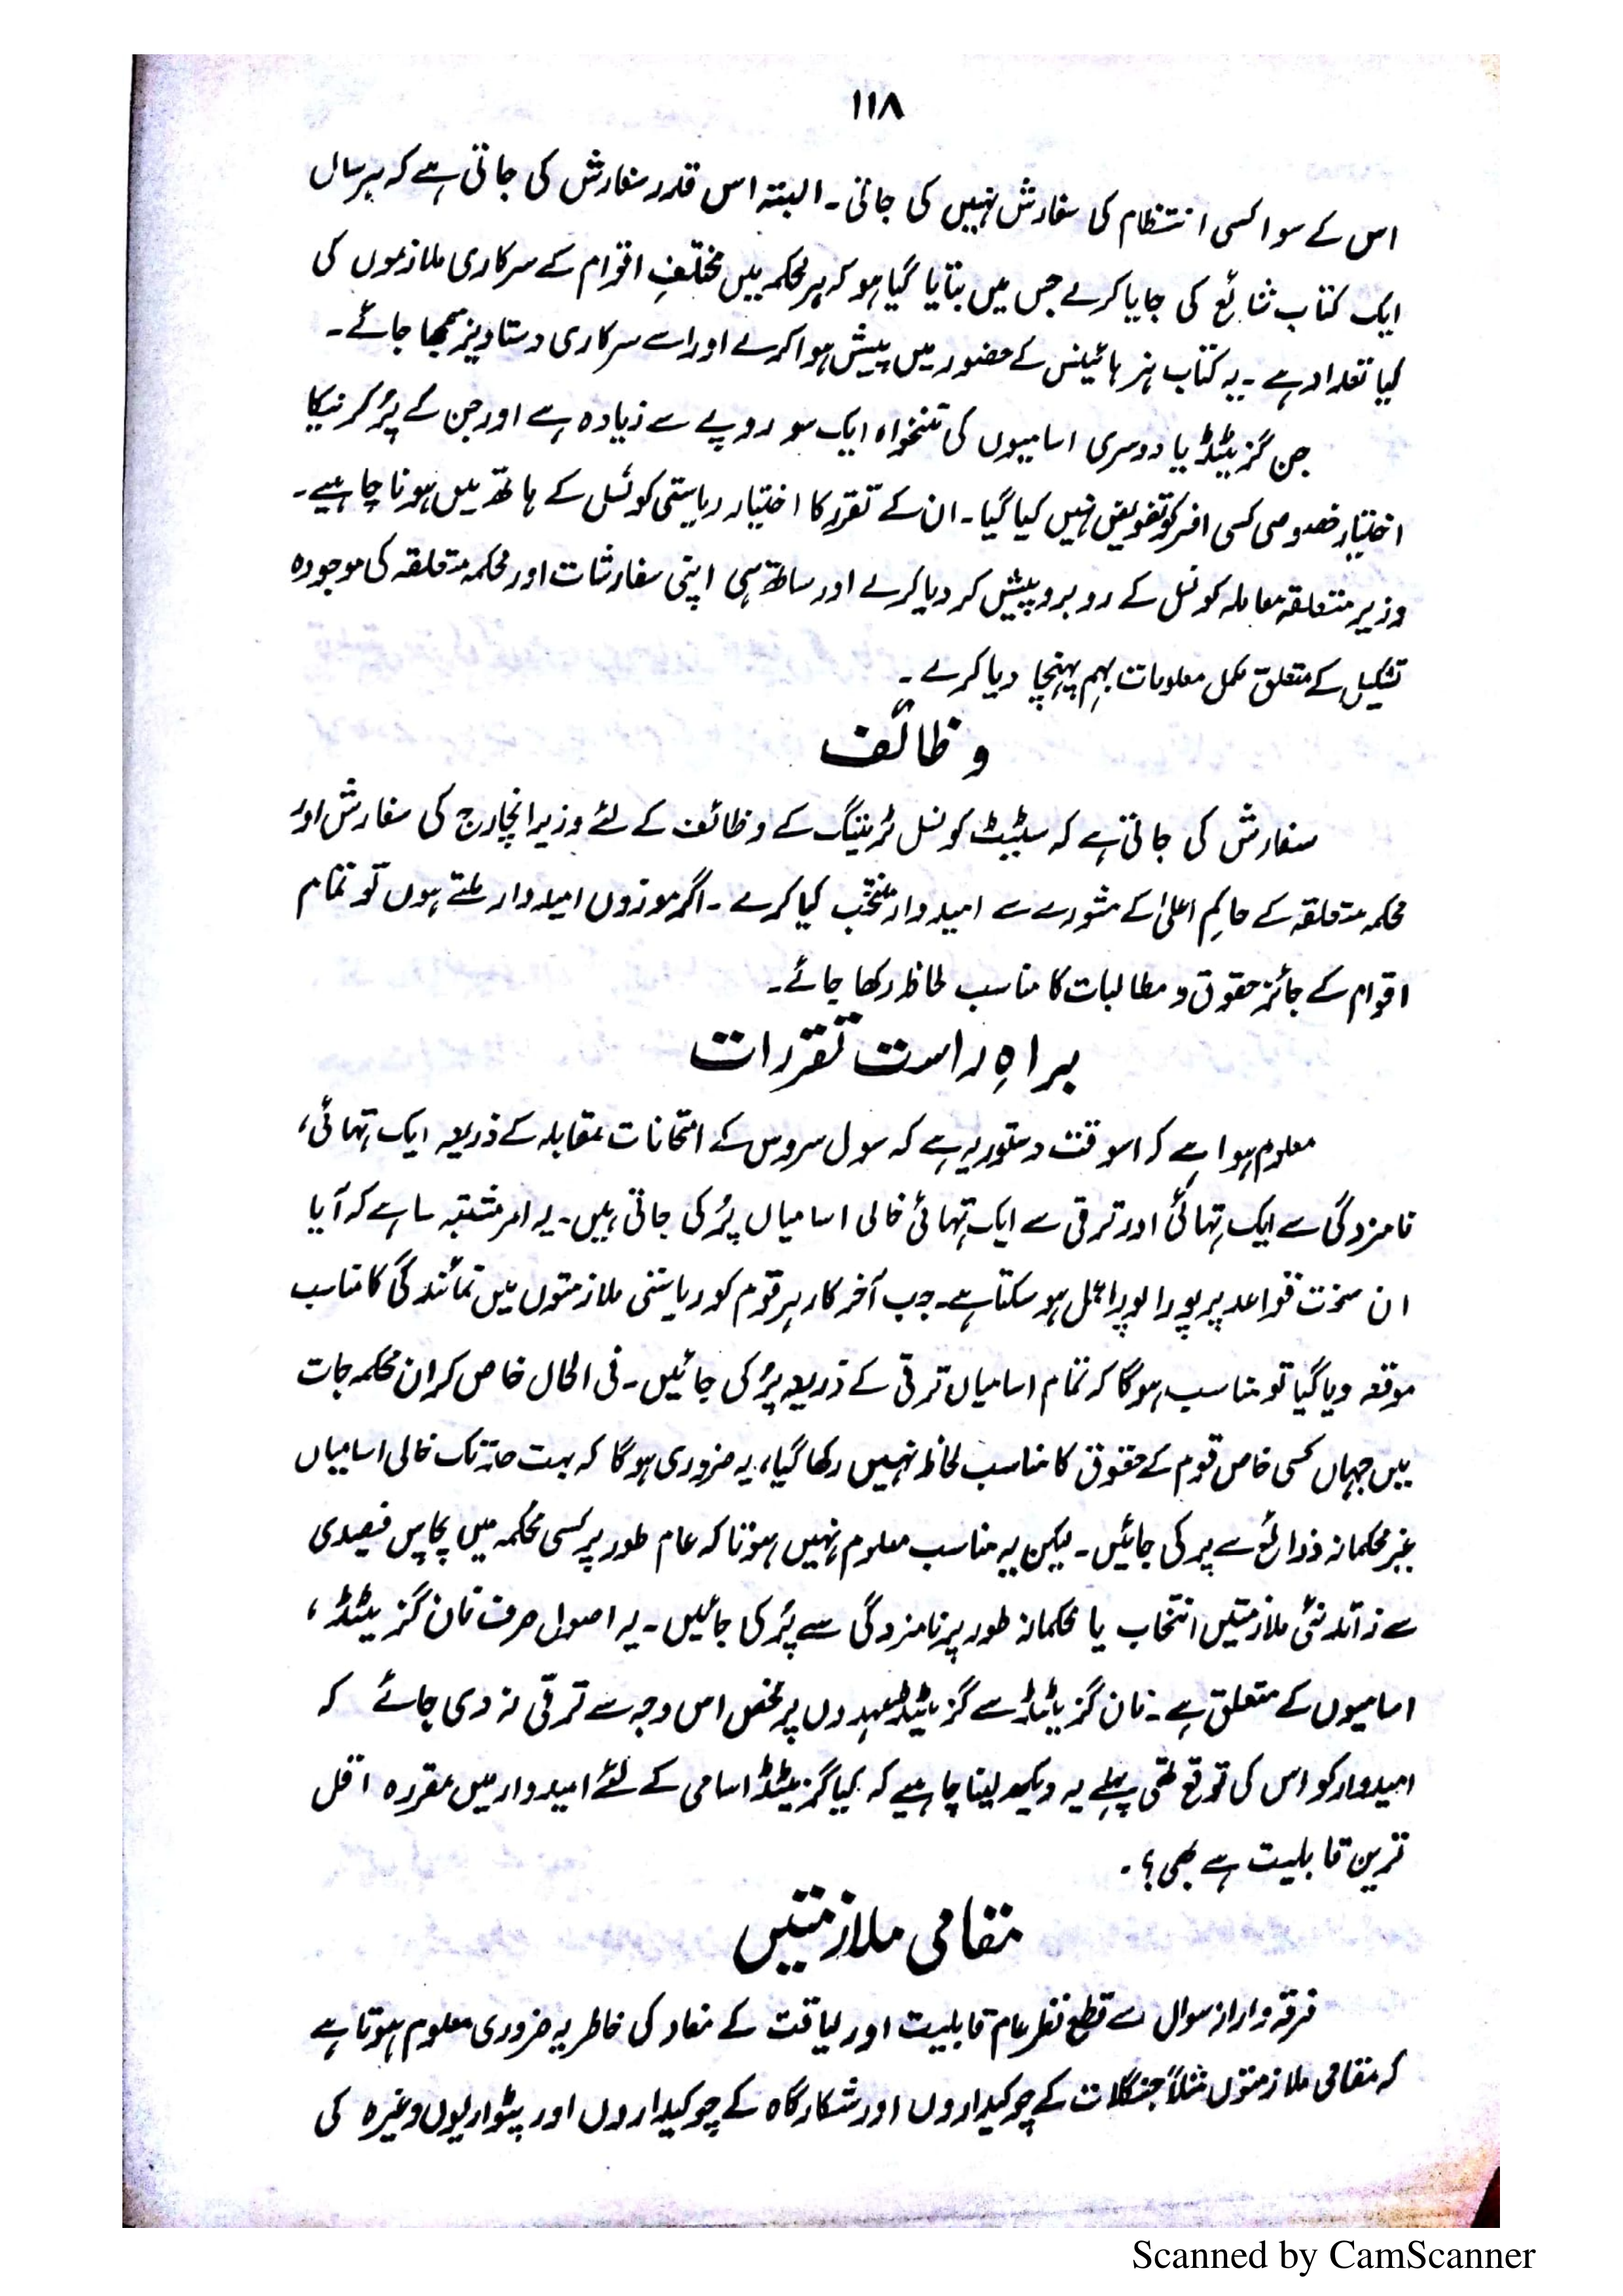 ۱۱۸
اس کے سوا کسی انتظام کی سفارش نہیں کی جاتی۔ البتہ اس قدر سفارش کی جاتی ہے کہ ہر سال
ایک کتاب شائع کی جایا کرے جس میں بتایا گیا ہو کہ ہر محکمہ میں مختلف اقوام کے سرکاری ملازموں کی
کیا تعداد ہے۔ یہ کتاب ہز ہائینس کے حضور میں پیش ہوا کرے اور اسے سرکاری دستاویز سمجھا جائے۔
جن گزیٹڈ یا دوسری اسامیوں کی تنخواہ ایک سو روپے سے زیادہ ہے اور جن کے پُر کرنیکا
اختیار خصوصی کسی افسر کو تفویض نہیں کیا گیا۔ ان کے تقرر کا اختیار ریاستی کونسل کے ہاتھ میں ہونا چاہیے۔
وزیر متعلقہ معاملہ کونسل کے روبرو پیش کر دیا کرے اور ساتھ ہی اپنی سفارشات اور محکمہ متعلقہ کی موجودہ
تشکیل کے متعلق مکمل معلومات بہم پہنچا دیا کرے۔
وظائف
سفارش کی جاتی ہے کہ سٹیٹ کونسل ٹریننگ کے وظائف کے لئے وزیر انچارج کی سفارش اور
محکمہ متعلقہ کے حاکمِ اعلیٰ کے مشورے سے امیدوار منتخب کیا کرے۔ اگر موزوں امیدوار ملتے ہوں تو تمام
اقوام کے جائز حقوق و مطالبات کا مناسب لحاظ رکھا جائے۔
براہِ راست تقررات
معلوم ہوا ہے کہ اسوقت دستور یہ ہے کہ سول سروس کے امتحانات مقابلہ کے ذریعہ ایک تہائی،
نامزدگی سے ایک تہائی اور ترقی سے ایک تہائی خالی اسامیاں پُر کی جاتی ہیں۔ یہ امر مشتبہ سا ہے کہ آیا
ان سخت قواعد پر پورا پورا عمل ہو سکتا ہے۔ جب آخر کار ہر قوم کو ریاستی ملازمتوں میں نمائندگی کا مناسب
موقعہ دیا گیا تو مناسب ہوگا کہ تمام اسامیاں ترقی کے ذریعہ پُر کی جائیں۔ فی الحال خاص کر ان محکمہ جات
میں جہاں کسی خاص قوم کے حقوق کا مناسب لحاظ نہیں رکھا گیا، یہ ضروری ہوگا کہ بہت حد تک خالی اسامیاں
غیر محکمانہ ذرائع سے پر کی جائیں۔ لیکن یہ مناسب معلوم نہیں ہوتا کہ عام طور پر کسی محکمہ میں پچاس فیصدی
سے زائد نئی ملازمتیں انتخاب یا محکمانہ طور پر نامزدگی سے پُر کی جائیں۔ یہ اصول صرف نان گزیٹڈ،
اسامیوں کے متعلق ہے۔ نان گزیٹڈ سے گزیٹڈ عہدوں پر محض اس وجہ سے ترقی نہ دی جائے کہ
امیدوار کو اس کی توقع تھی پہلے یہ دیکھ لینا چاہیے کہ کیا گزیٹڈ اسامی کے لئے امیدوار میں مقررہ اقل
ترین قابلیت ہے بھی؟۔
مقامی ملازمتیں
فرقہ وارانہ سوال سے قطع نظر عام قابلیت اور لیاقت کے مفاد کی خاطر یہ ضروری معلوم ہوتا ہے
کہ مقامی ملازمتوں مثلاً جنگلات کے چوکیداروں اور شکارگاہ کے چوکیداروں اور پٹواریوں وغیرہ کی
Scanned by CamScanner